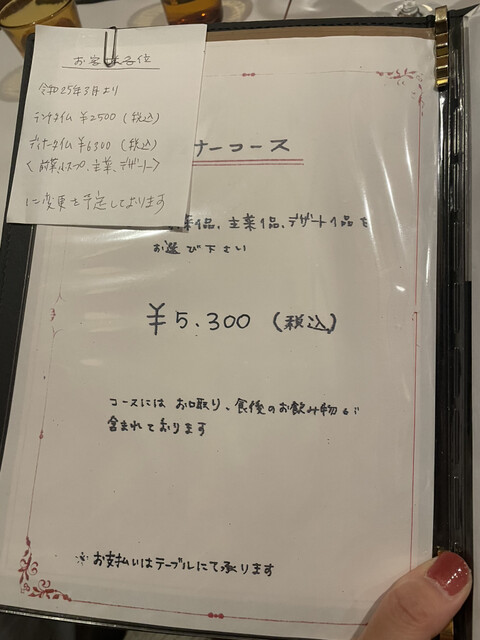 お客様各位
令和25年3月より
ランチタイム ¥2500 (税込)
ディナータイム ¥6300 (税込)
〈前菜、スープ、主菜、デザート〉
に変更を予定しております
ナーコース
菜1品、主菜1品、デザート1品を
お選び下さい
¥5.300 (税込)
コースには お口取り、食後のお飲み物が
含まれております
※お支払いはテーブルにて承ります